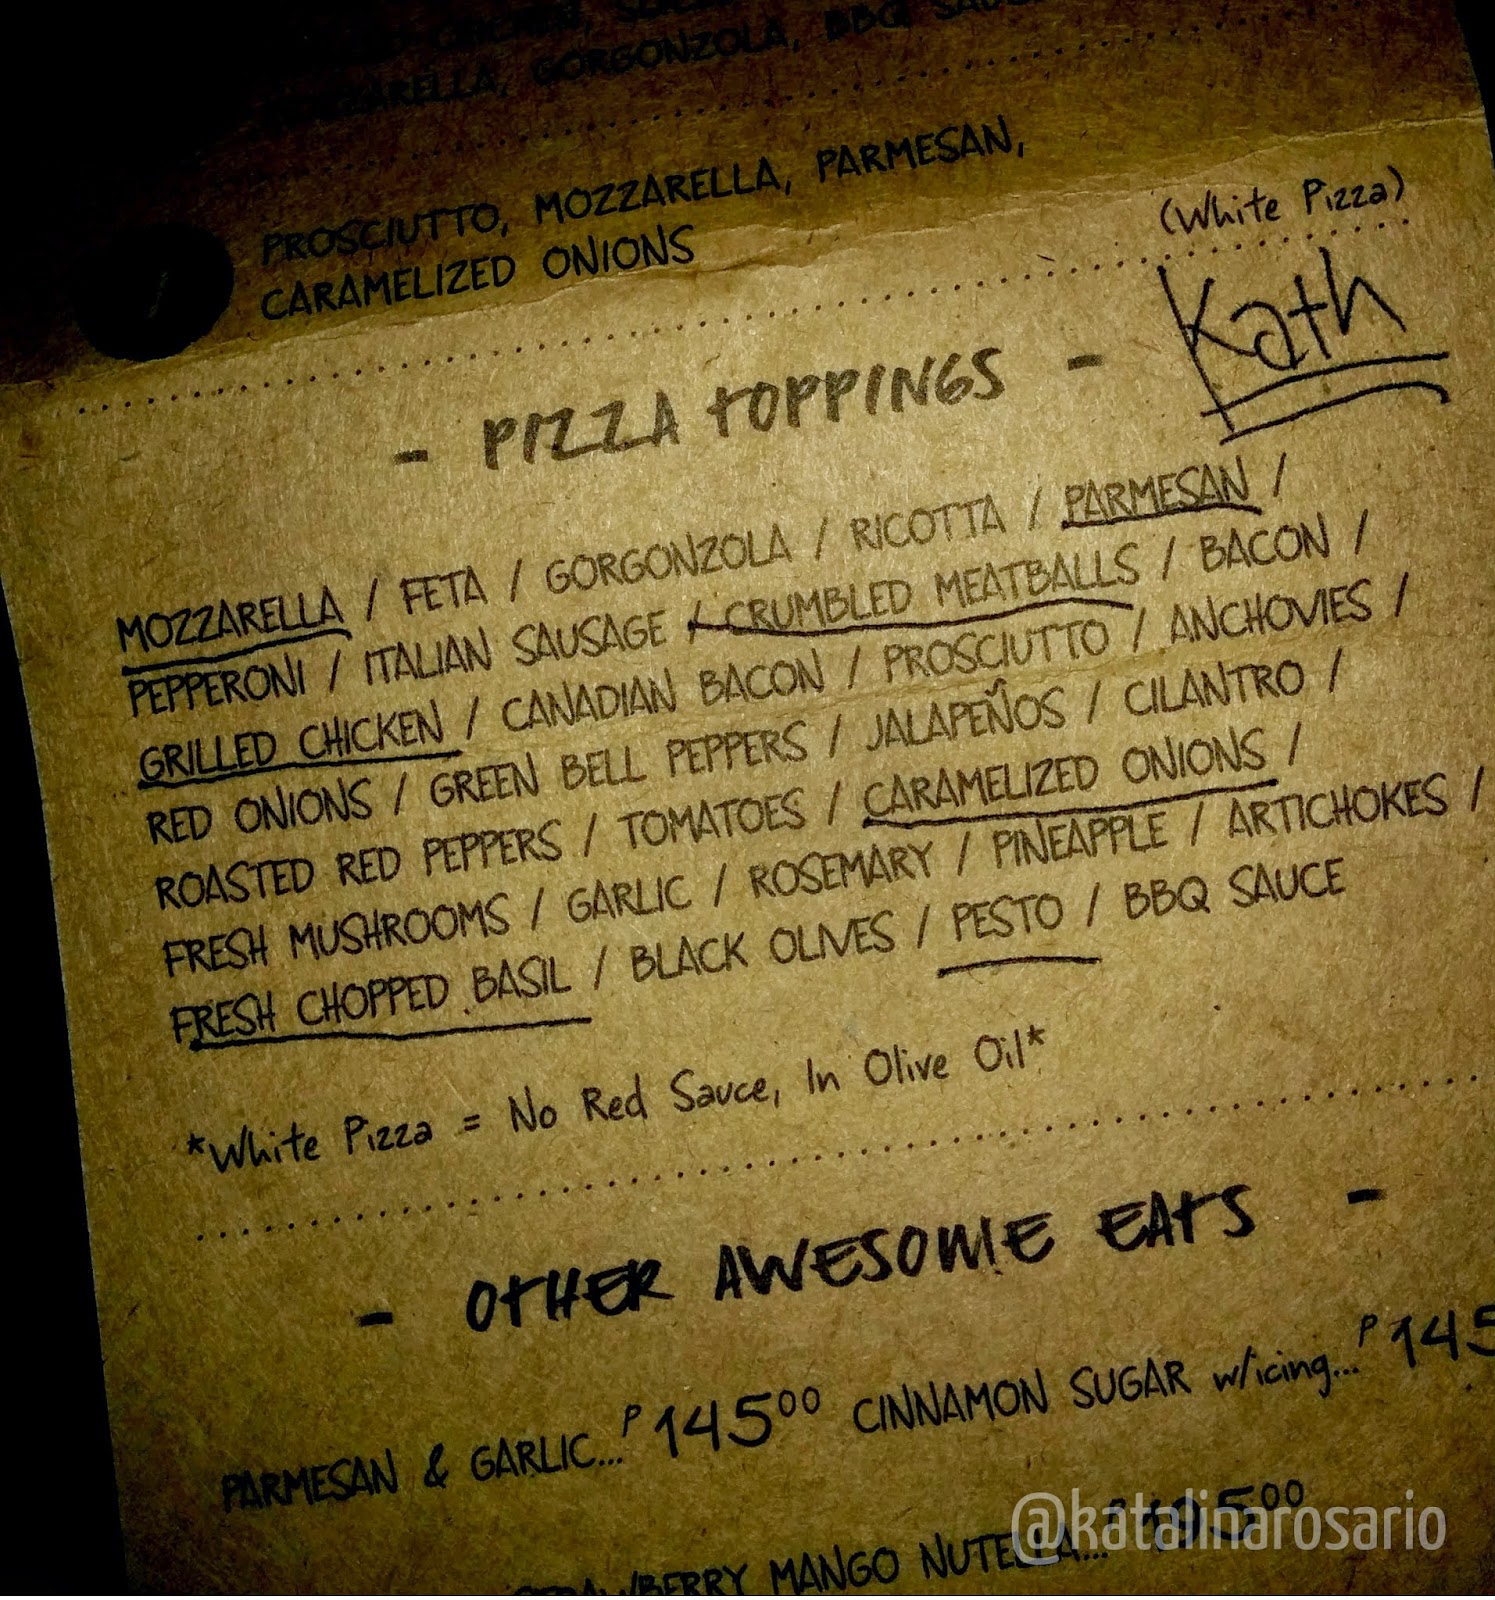 MOZZARELLA, GORGONZOLA, BBQ SAUCE
PROSCIUTTO, MOZZARELLA, PARMESAN,
CARAMELIZED ONIONS
(White Pizza)
Kath
- PIZZA TOPPINGS -
MOZZARELLA / FETA / GORGONZOLA / RICOTTA / PARMESAN /
PEPPERONI / ITALIAN SAUSAGE / CRUMBLED MEATBALLS / BACON /
GRILLED CHICKEN / CANADIAN BACON / PROSCIUTTO / ANCHOVIES /
RED ONIONS / GREEN BELL PEPPERS / JALAPEÑOS / CILANTRO /
ROASTED RED PEPPERS / TOMATOES / CARAMELIZED ONIONS /
FRESH MUSHROOMS / GARLIC / ROSEMARY / PINEAPPLE / ARTICHOKES /
FRESH CHOPPED BASIL / BLACK OLIVES / PESTO / BBQ SAUCE
*White Pizza = No Red Sauce, In Olive Oil*
- OTHER AWESOME EATS -
PARMESAN & GARLIC...P14500 CINNAMON SUGAR w/icing...P145
STRAWBERRY MANGO NUTELLA...P19500
@katalinarosario